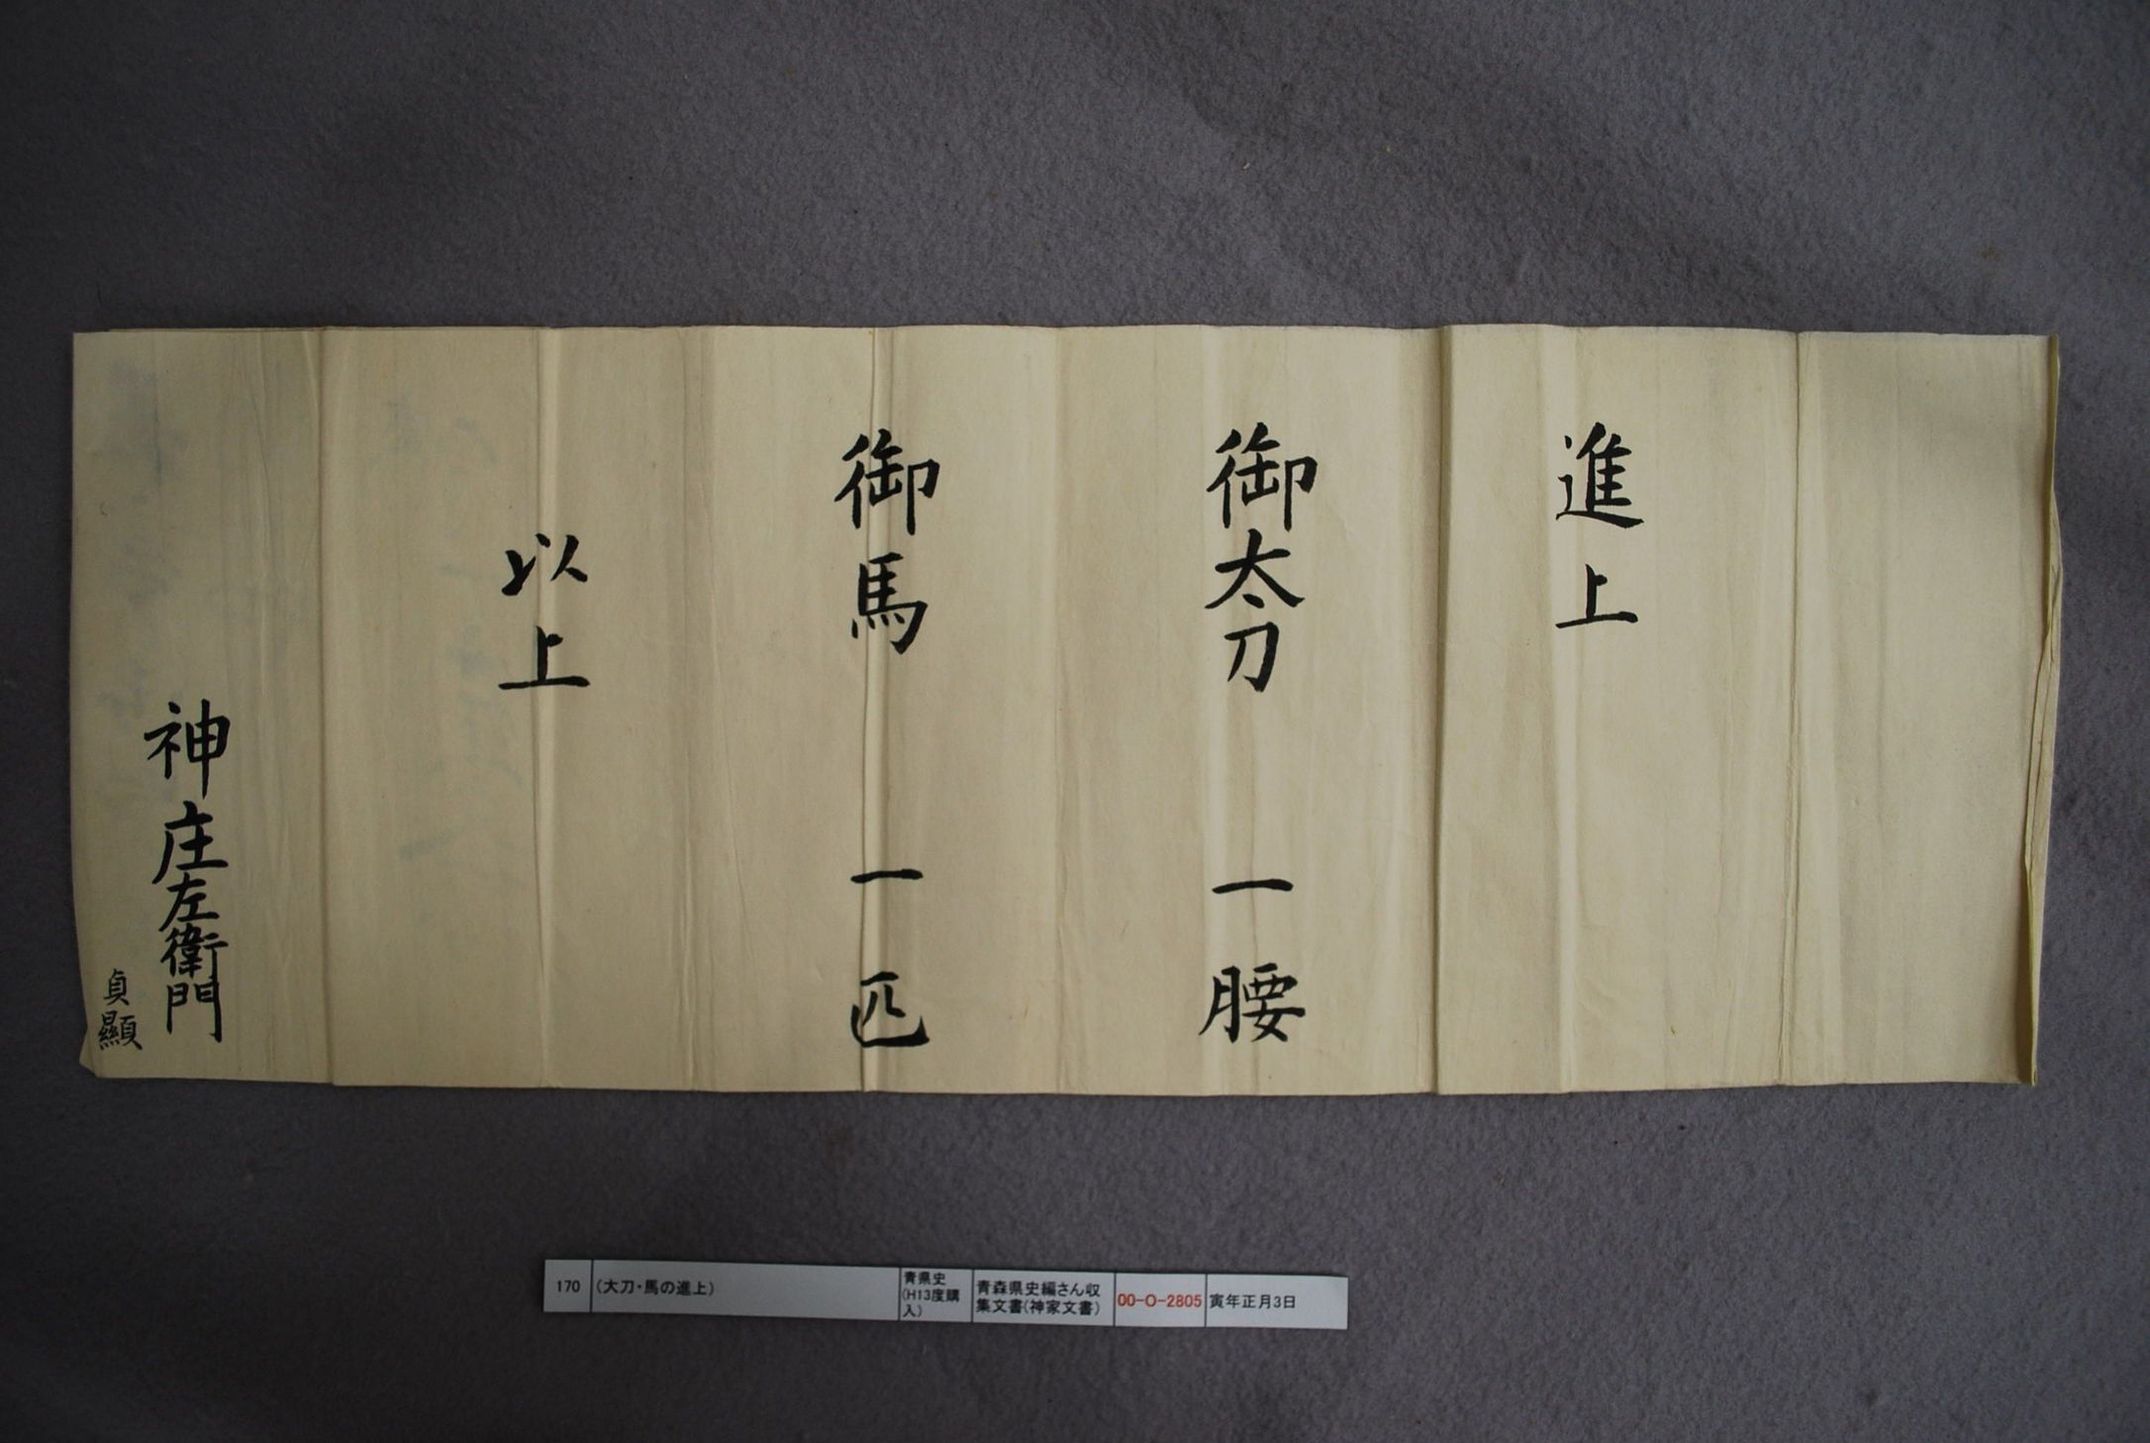 進上
御太刀 一腰
御馬 一匹
以上
神庄左衛門
貞顯
170
(太刀・馬の進上)
青県史
(H13度購
入)
青森県史編さん収
集文書(神家文書)
00-O-2805
寅年正月3日